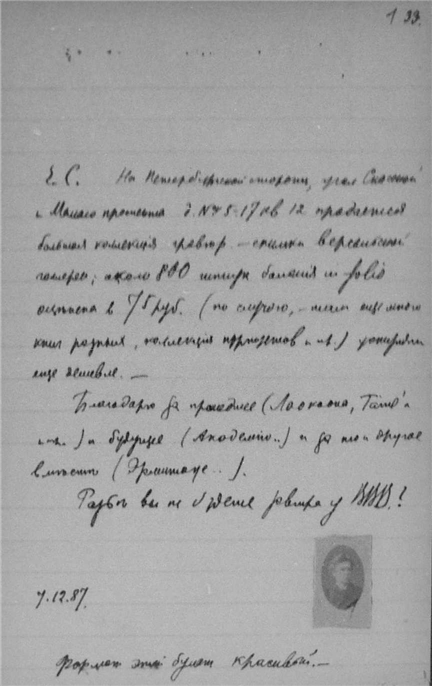 1 33.
Е. С. На Петербургской стороне, угол
и Малаго проспекта д. № 45-17 кв 12 продается
большая коллекція гравюр — снимки версальской
галереи; около 800 штук большія in folio
оценена в 75 руб. (по случаю, — там еще много
книг разных, коллекція и пр.)
еще дешевле. —
Благодарю за прошедшее (Лаокоона, Тэна
и пр.) и будущее (Академию..) и за то и другое
вместе (Эрмитаж . . ).
Разве вы не будете завтра у ВВВ.?
7.12.87.
Формат этот будет красивый. —